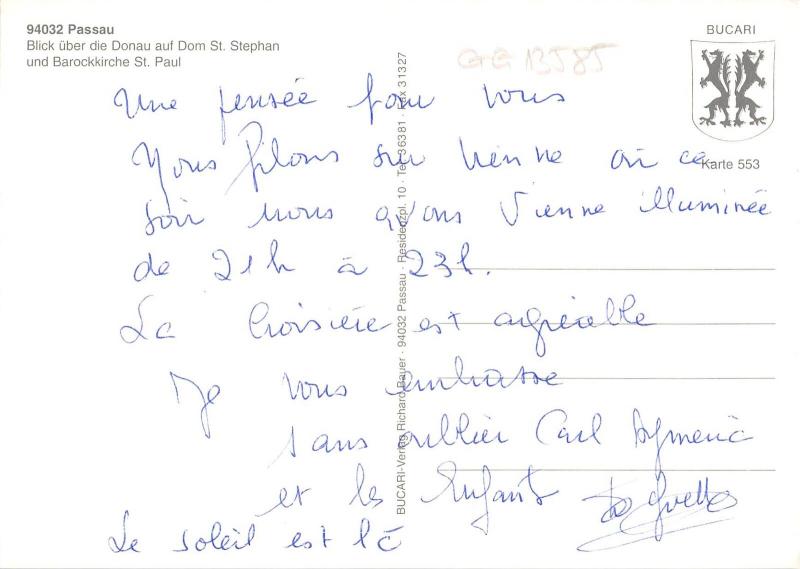 94032 Passau
Blick über die Donau auf Dom St. Stephan
und Barockkirche St. Paul
BUCARI
GG 13585
Karte 553
BUCARI-Verlag Richard Bauer · 94032 Passau · Residenzpl. 10 · Tel. 36381 · Fax 31327
Une pensée pour vous
Nous filons sur Vienne où ce
soir nous avons Vienne illuminée
de 21h à 23h.
La Croisière est agréable
Je vous embrasse
sans oublier Carl Aymeric
et les Enfants
Le soleil est là